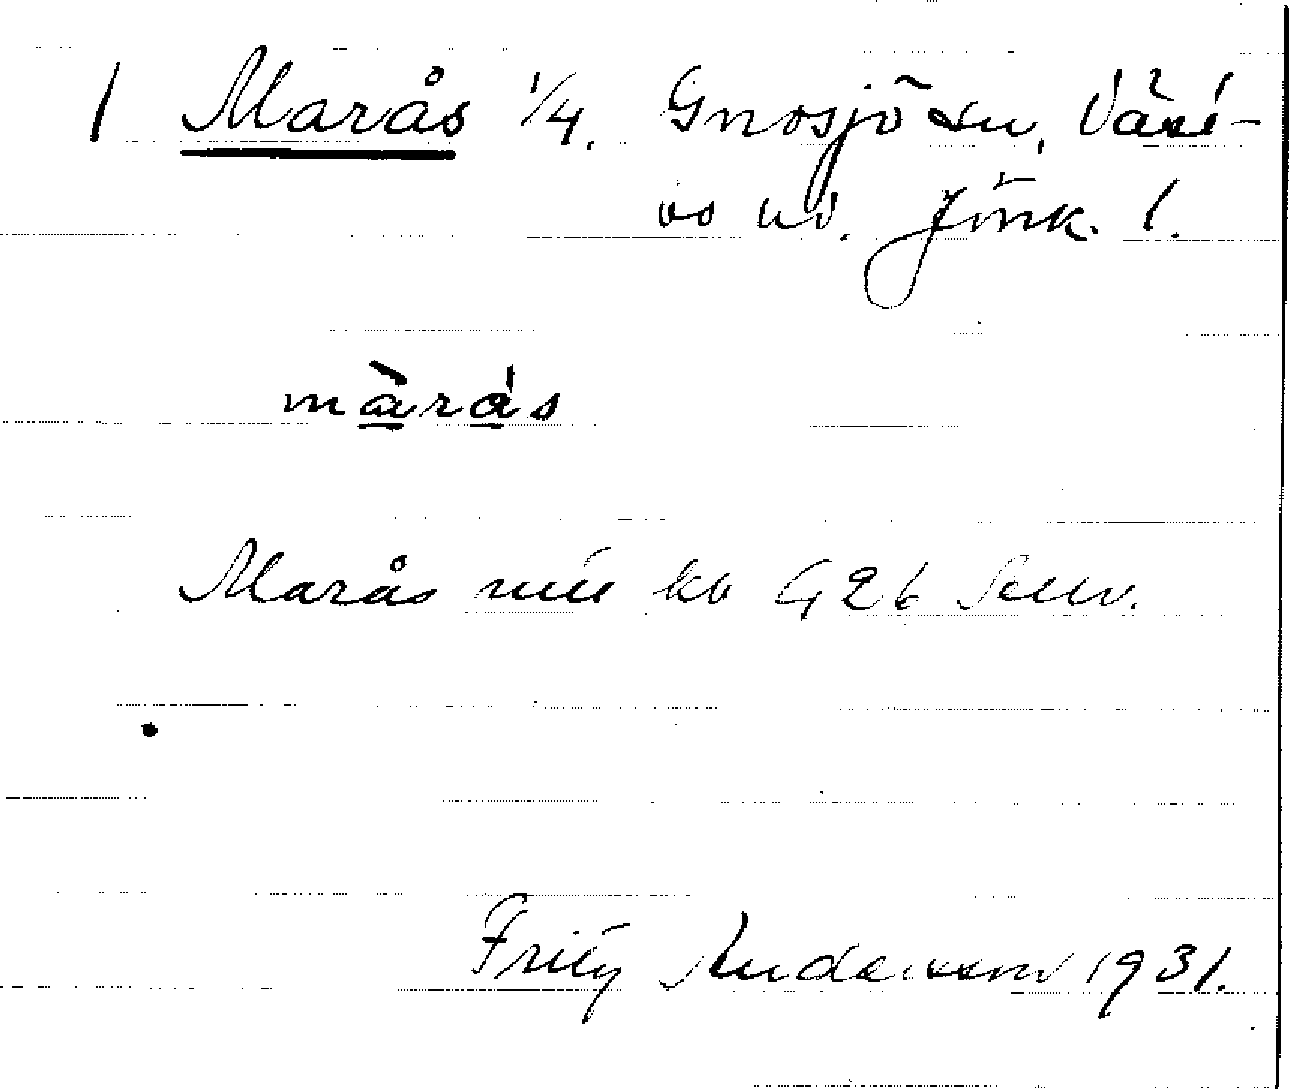 1 Marås 1/4. Gnosjö sn, Väst-
bo hd. Jönk. l.
màrás
Marås mü kb G 26 Sellv.
Fritz Andersson 1931.